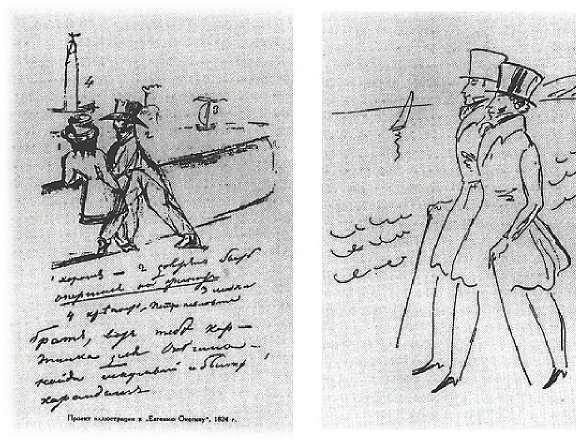 4
3
1 хорошъ — 2 долженъ быть
опершися на гранитъ
3 лодка
4 крѣпость, Петропавловская
Братъ, вотъ тебѣ кар-
тинка для Онѣгина —
найди искусный и быстрый
карандашъ
Проект иллюстрации к „Евгению Онегину", 1824 г.